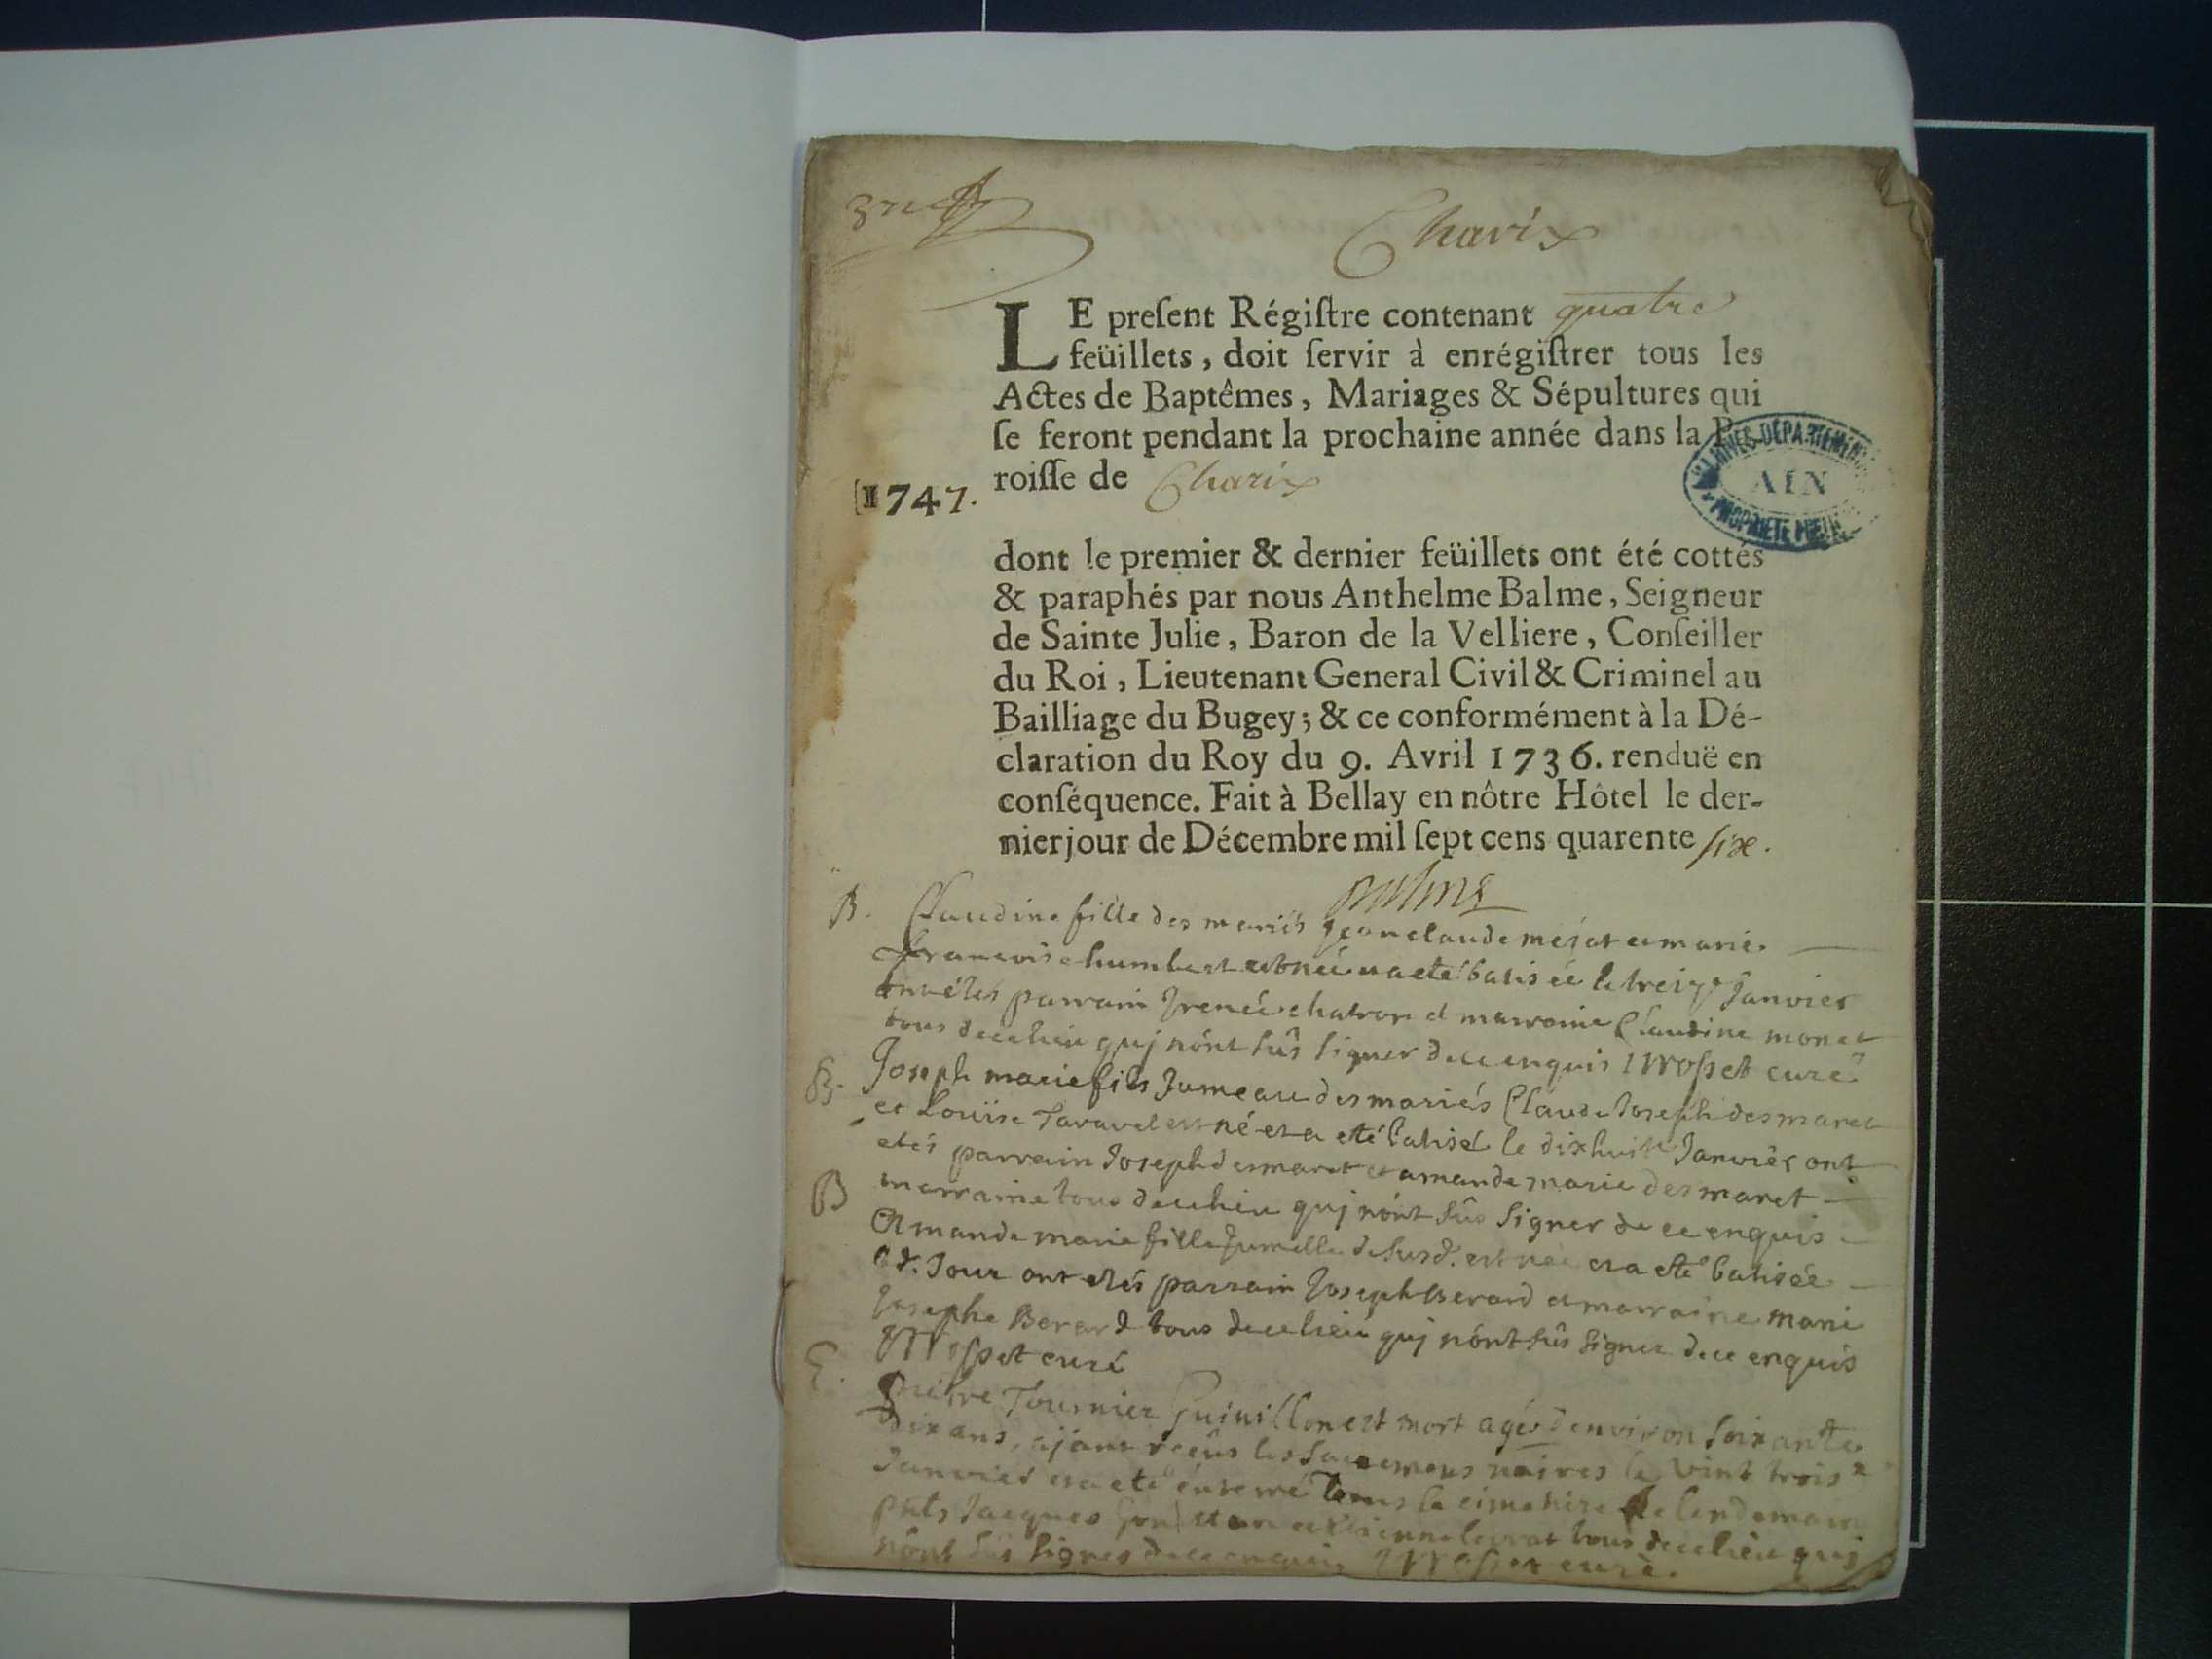 Charix
LE preſent Régiſtre contenant quatre
feüillets, doit ſervir à enrégiſtrer tous les
Actes de Baptêmes, Mariages & Sépultures qui
ſe feront pendant la prochaine année dans la P
roiſſe de Charix
1747.
AIN
dont le premier & dernier feüillets ont été cottés
& paraphés par nous Anthelme Balme, Seigneur
de Sainte Julie, Baron de la Velliere, Conſeiller
du Roi, Lieutenant General Civil & Criminel au
Bailliage du Bugey; & ce conformément à la Dé-
claration du Roy du 9. Avril 1736. renduë en
conſéquence. Fait à Bellay en nôtre Hôtel le der-
nier jour de Décembre mil ſept cens quarente ſix.
Balme
B. Claudine fille des mariés Jean claude et marie
francoise humbert est née et a eté batisée le treize Janvier
ont étés parrain Irenée chatron et marraine Claudine monet
tous de ce lieu quj nónt sûs signer de ce enquis curé
B. Joseph marie fils Jumeau des mariés Claude Joseph desmaret
et Louïse Tavavel est né et a eté batisé le dixhuit Janvier ont
etés parrain Joseph desmaret et amande marie desmaret
marraine tous de ce lieu quj nónt sûs signer de ce enquis
B Amande marie fille Jumelle de susd. est née et a eté batisée
Jour ont etés parrain Joseph Berard et marraine marie
Josephe Berard tous de ce lieu quj nónt sûs signer de ce enquis
curé
E. Tournier Guinillon est mort agé d'environ soixante
dix ans, ajant reçûs les sacremens le vint trois
Janvier et a eté énterré dans le cimetiere le lendemain
pñts Jacques et tous de ce lieu quj
nónt sûs signer de ce enquis curé.